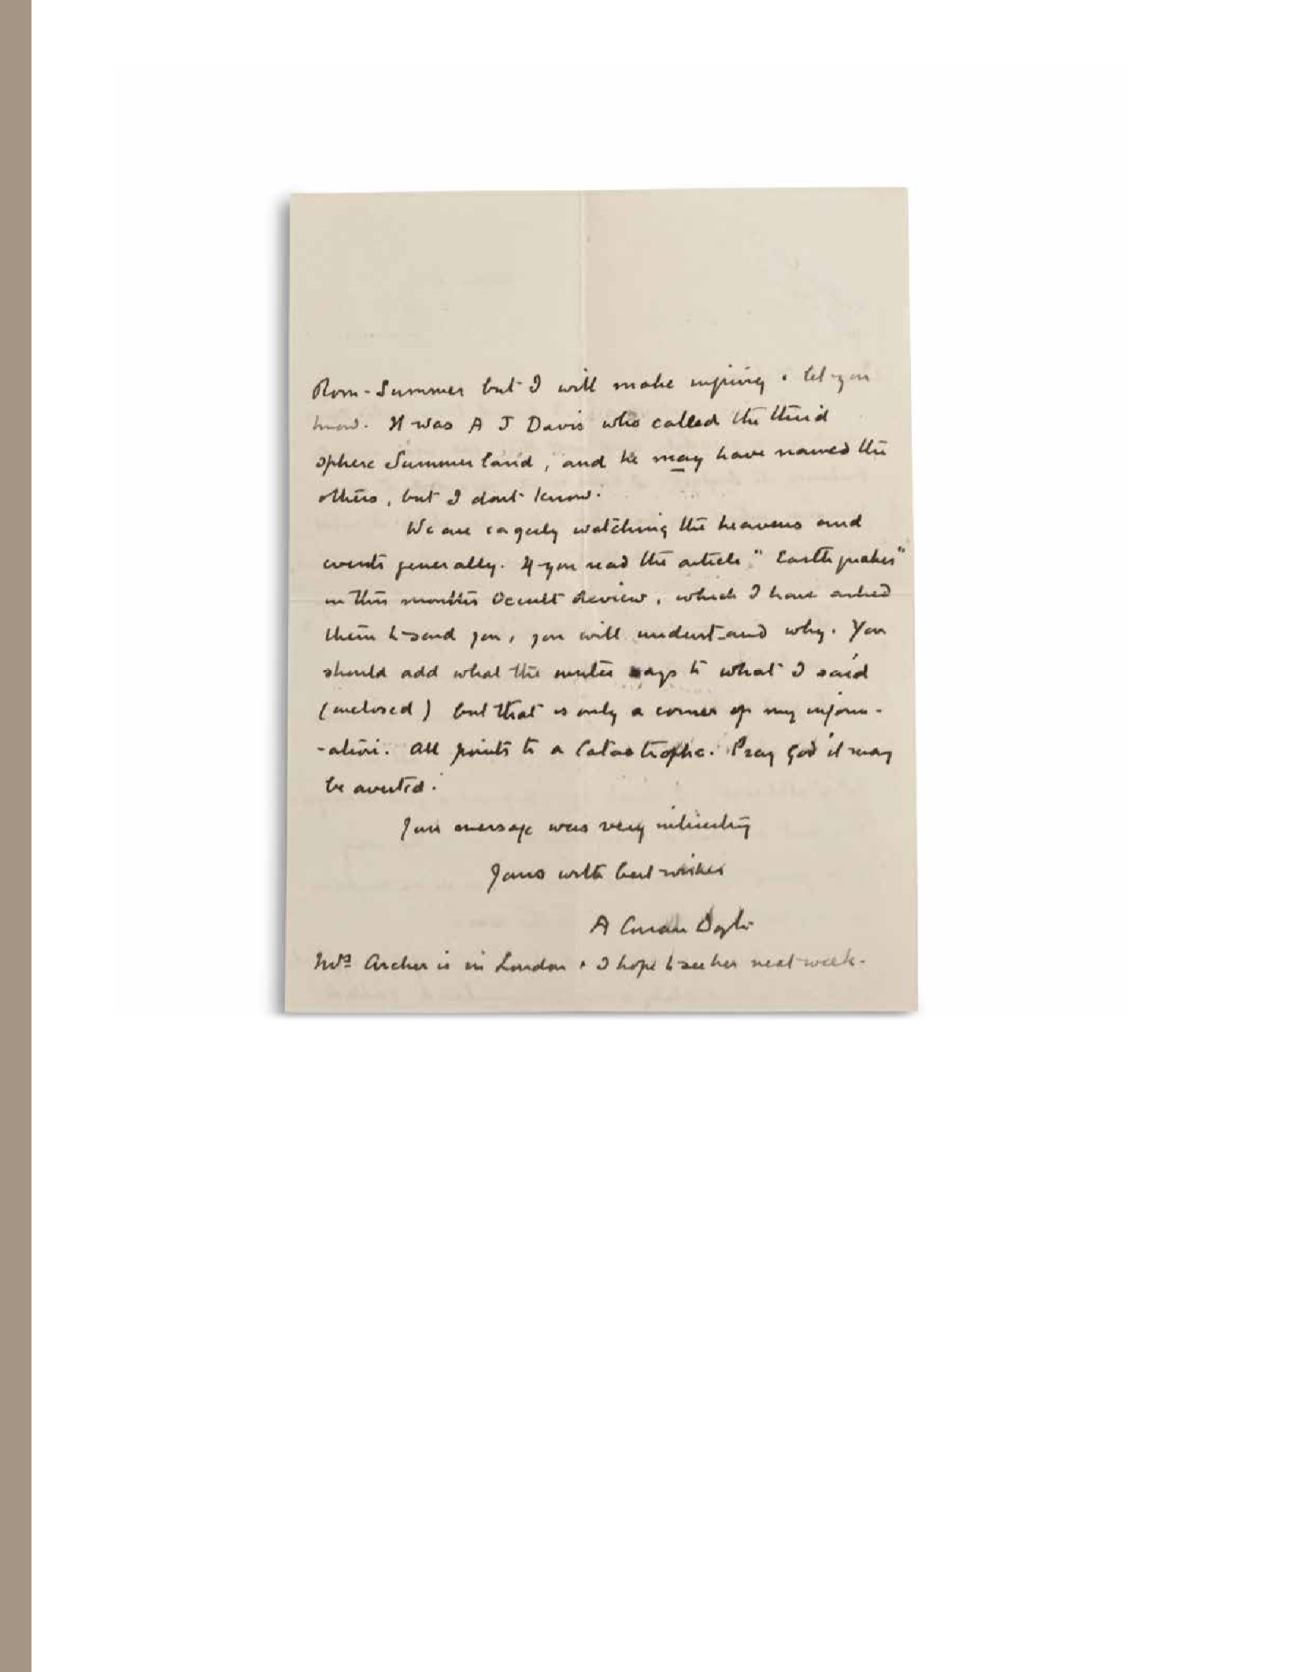 Rom-Summer but I will make inquiry & let you
know. It was A J Davis who called the third
sphere Summerland, and he may have named the
others, but I dont know.
We are eagerly watching the heavens and
events generally. If you read the article "Earthquakes"
in this months Occult Review, which I have asked
them to send you, you will understand why. You
should add what the writer says to what I said
(enclosed) but that is only a corner of my inform-
-ation. All points to a Catastrophe. Pray God it may
be averted.
Your message was very interesting
Yours with best wishes
A Conan Doyle
Mrs Archer is in London & I hope to see her next week.